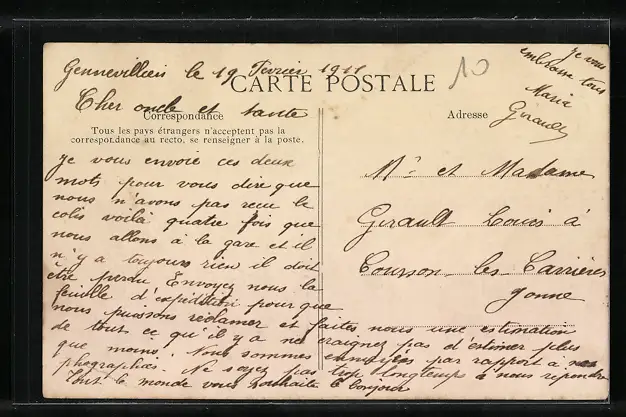 Gennevilliers le 19 Fevrier 1911
CARTE POSTALE
10
Je vous
embrasse tous
Maria
Girault
Cher oncle et tante
Correspondance
Tous les pays étrangers n'acceptent pas la
correspondance au recto, se renseigner à la poste.
Adresse
Mr et Madame
Girault Louis à
Courson les Carrières
Yonne
Je vous envoie ces deux
mots pour vous dire que
nous n'avons pas recu le
colis voilà quatre fois que
nous allons à la gare et il
n'y a toujours rien il doit
être perdu Envoyez nous la
feuille d'expédition pour que
nous puissons réclamer et faites nous une estimation
de tout ce qu'il y a ne craignez pas d'estimer plus
que moins. Nous sommes ennuyées par rapport à nos
phographies. Ne soyez pas trop longtemps à nous répondre
Tout le monde vous souhaite le bonjour